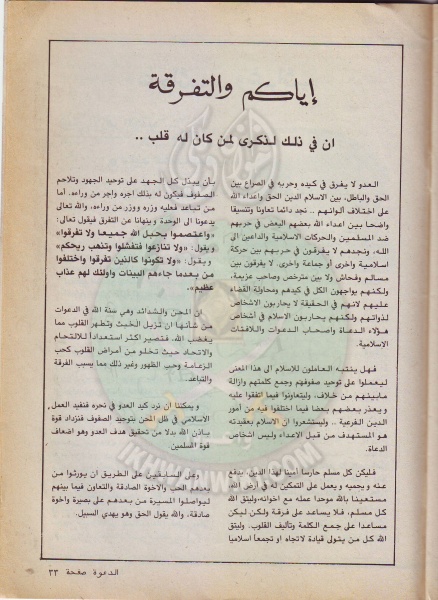 إياكم والتفرقة
ان في ذلك لذكرى لمن كان له قلب ..
العدو لا يفرق في كيده وحربه في الصراع بين
الحق والباطل، بين الاسلام الدين الحق واعداء الله
على اختلاف ألوانهم .. نجد دائما تعاونا وتنسيقا
واضحا بين اعداء الله بعضهم البعض في حربهم
ضد المسلمين والحركات الاسلامية والداعين الى
الله، ونجدهم لا يفرقون في حربهم بين حركة
اسلامية واخرى أو جماعة واخرى، لا يفرقون بين
مسالم وفحاش ولا بين مترخص وصاحب عزيمة،
ولكنهم يواجهون الكل في كيدهم ومحاولة القضاء
عليهم لانهم في الحقيقة لا يحاربون الاشخاص
لذواتهم ولكنهم يحاربون الاسلام في أشخاص
هؤلاء الدعاة واصحاب الدعوات واللافتات
الاسلامية.
فهل ينتبه العاملون للاسلام الى هذا المعنى
ليعملوا على توحيد صفوفهم وجمع كلمتهم وازالة
مابينهم من خلاف، وليتعاونوا فيما اتفقوا عليه
ويعذر بعضهم بعضا فيما اختلفوا فيه من أمور
الدين الفرعية .. وليستشعروا ان الاسلام بعقيدته
هو المستهدف من قبل الاعداء وليس أشخاص
الدعاة.
فليكن كل مسلم حارسا أمينا لهذا الدين، يدفع
عنه ويحميه ويعمل على التمكين له في أرض الله،
مستعينا بالله موحدا عمله مع اخوانه، وليثق
كل مسلم، فلا يساعد على فرقة ولكن وليكن
مساعدا على جمع الكلمة وتأليف القلوب. وليثق
الله كل من يتولى قيادة لاتجاه او تجمعا اسلاميا
بأن يبذل كل الجهد على توحيد الجهود وتلاحم
الصفوف فيكون له بذلك اجره واجر من وراءه. أما
من تباعد فعليه وزره ووزر من وراءه، والله تعالى
يدعونا الى الوحدة وينهانا عن التفرق فيقول تعالى:
«واعتصموا بحبل الله جميعا ولا تفرقوا»
ويقول: «ولا تنازعوا فتفشلوا وتذهب ريحكم»
ويقول: «ولا تكونوا كالذين تفرقوا واختلفوا
من بعدما جاءهم البينات واولئك لهم عذاب
عظيم».
ان المحن والشدائد وهي سنة الله في الدعوات
من شأنها ان تزيل الخبث وتطهر القلوب مما
يغضب الله. فتصير اكثر استعدادا للالتحام
والاتحاد حيث تخلو من أمراض القلوب كحب
الزعامة وحب الظهور وغير ذلك مما يسبب الفرقة
والتباعد.
ويمكننا أن نرد كيد العدو في نحره فنفيد العمل
الاسلامي في ظل المحن بتوحيد الصفوف فنزداد قوة
باذن الله بدلا من تحقيق هدف العدو وهو اضعاف
قوة المسلمين.
وعلى السابقين على الطريق ان يورثوا من
بعدهم الحب والاخوة الصادقة والتعاون فيما بينهم
ليواصلوا المسيرة من بعدهم على بصيرة واخوة
صادقة، والله يقول الحق وهو يهدي السبيل.
الدعوة صفحة ٣٣